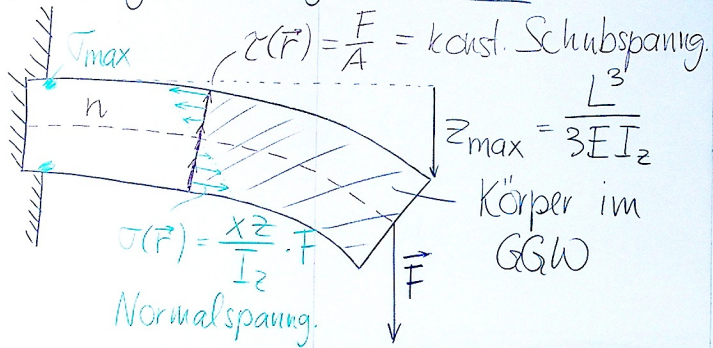 σmax
τ(r⃗) = F/A = konst. Schubspanng.
n
zmax = L³/3EIz
Körper im
GGW
σ(r⃗) = xz/Iz · F
F⃗
Normalspanng.